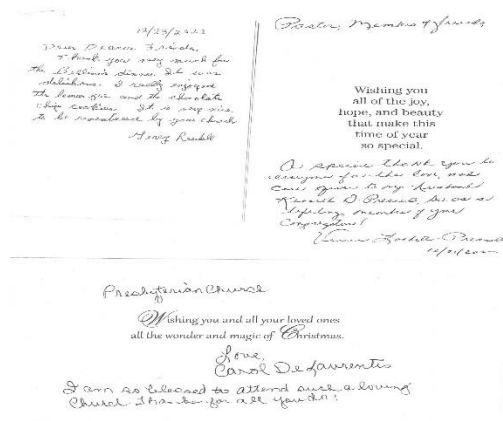 Thank you very much for
delicious. I really enjoyed
the lemon pie and the chocolate
chip cookies. It is very nice
to be remembered by your church
Pastor, Members & friends
Wishing you
all of the joy,
hope, and beauty
that make this
time of year
so special.
A special thank you to
everyone for the love, and
care given to my husband
Kenneth D.
lifelong member of your
Congregation!
Presbyterian Church
Wishing you and all your loved ones
all the wonder and magic of Christmas.
Love,
Carol DeLaurentis
I am so blessed to attend such a loving
Church Thanks for all you do!